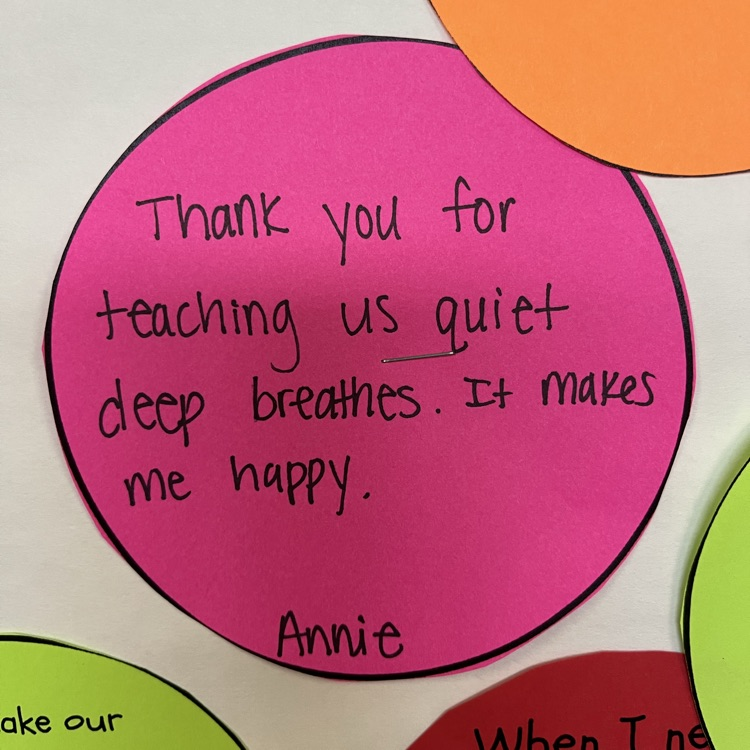 Thank you for
teaching us quiet
deep breathes. It makes
me happy.
Annie
ake our
When I ne